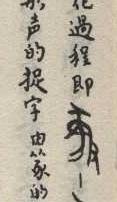 化過程即
形声的捉字由篆的